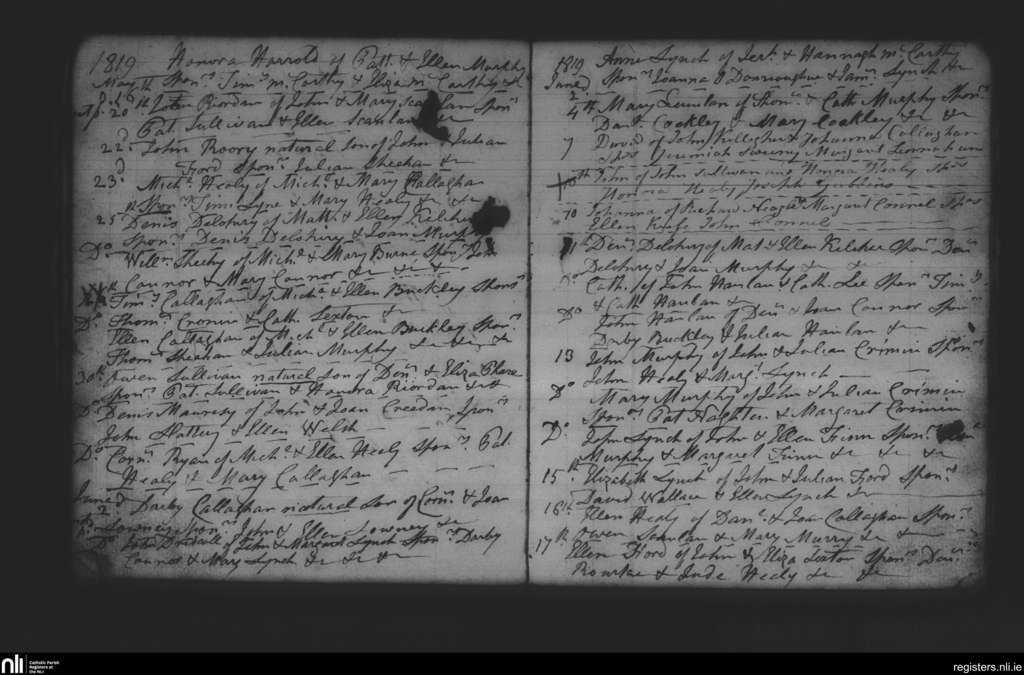 1819 Honora Harrold of Patt. & Ellen Murphy
May Spon.rs Tim.y McCarthy & Eliza McCarthy &c
20th John Riordan of John & Mary Scanlan Spon.rs
Pat. Sullivan & Ellen Scanlan &c
22d John Roory natural Son of John & Julian
Ford Spon.rs Julian Sheehan &c
23d Mich.l Healy of Mich.l & Mary Callaghan
Spon.rs Tim Lyne & Mary Healy &c &c
25th Denis Delohery of Matt. & Ellen Kelcher
Spon.rs Denis Delohery & Joan Murphy
Do Will.m Sheehy of Mich.l & Mary Burne Spon.rs
Connor & Mary Connor &c &c
Tim.y Callaghan of Mich.l & Ellen Buckley Spon.rs
Thom.s Cronin & Cath. Sexton &c
Do Ellen Callaghan of Mich.l & Ellen Buckley Spon.rs
Thom.s Sheahan & Julian Murphy &c &c &c
30th Owen Sullivan natural son of Den.s & Eliza
Spon.rs Pat. Sullivan & Honora Riordan &c
Do Denis of John & Joan Creedan Spon.rs
John Slattery & Ellen Welsh
Do Corn.s Ryan of Mich.l & Ellen Healy Spon.rs Pat.
Healy & Mary Callaghan
June 2d Darby Callaghan natural Son of Corn.s & Joan
Lowney Spon.rs John & Ellen Lowney &c
Do John Driscoll of John & Margaret Lynch Spon.rs Darby
Connor & Mary Lynch &c &c &c
1819 Anne Lynch of Jer.h & Hannagh McCarthy
June 2d Spon.rs Joanna O Donnoughue & Jam.s Lynch &c
4th Mary Quinlan of Thom.s & Cath. Murphy Spon.rs
Dan.l Coakley & Mary Coakley &c &c
7 David of John Kelleher & Johanna Callaghan
Sp.rs Jeremiah Sweeny Margaret
10th John of John Sullivan and Honora Healy Sp.rs
Honora Healy Joseph Gubbins
10 Johanna of Richard & Margaret Connel Sp.rs
Ellen Keefe John Connel
11th Den.s Delohery of Mat. & Ellen Kelcher Spon.rs Den.s
Delohery & Joan Murphy & &
Do Cath. of John Hanlan & Cath. Lee Spon.rs Tim.y
& Cath. Hanlan &
Do John Hanlan of Den.s & Joan Connor Spon.rs
Darby Buckley & Julian Hanlan &c
13 John Murphy of John & Julian Crimin Spon.rs
John Healy & Marg.t Lynch
Do Mary Murphy of John & Julian Crimin
Spon.rs Pat Naghten & Margaret Crimin
Do John Lynch of John & Ellen Finn Spon.rs
Murphy & Margaret Finn &c &c &c
15th Elizabeth Lynch of John & Julian Ford Spon.rs
David Wallace & Ellen Lynch &c
16th Ellen Healy of Dan.l & Joan Callaghan Spon.rs
Owen & Mary Murry &c &c
17th Ellen Ford of John & Eliza Sexton Spon.rs Den.s
Rourke & Jude Healy &c &c
nli Catholic Parish
Registers at
the NLI
registers.nli.ie